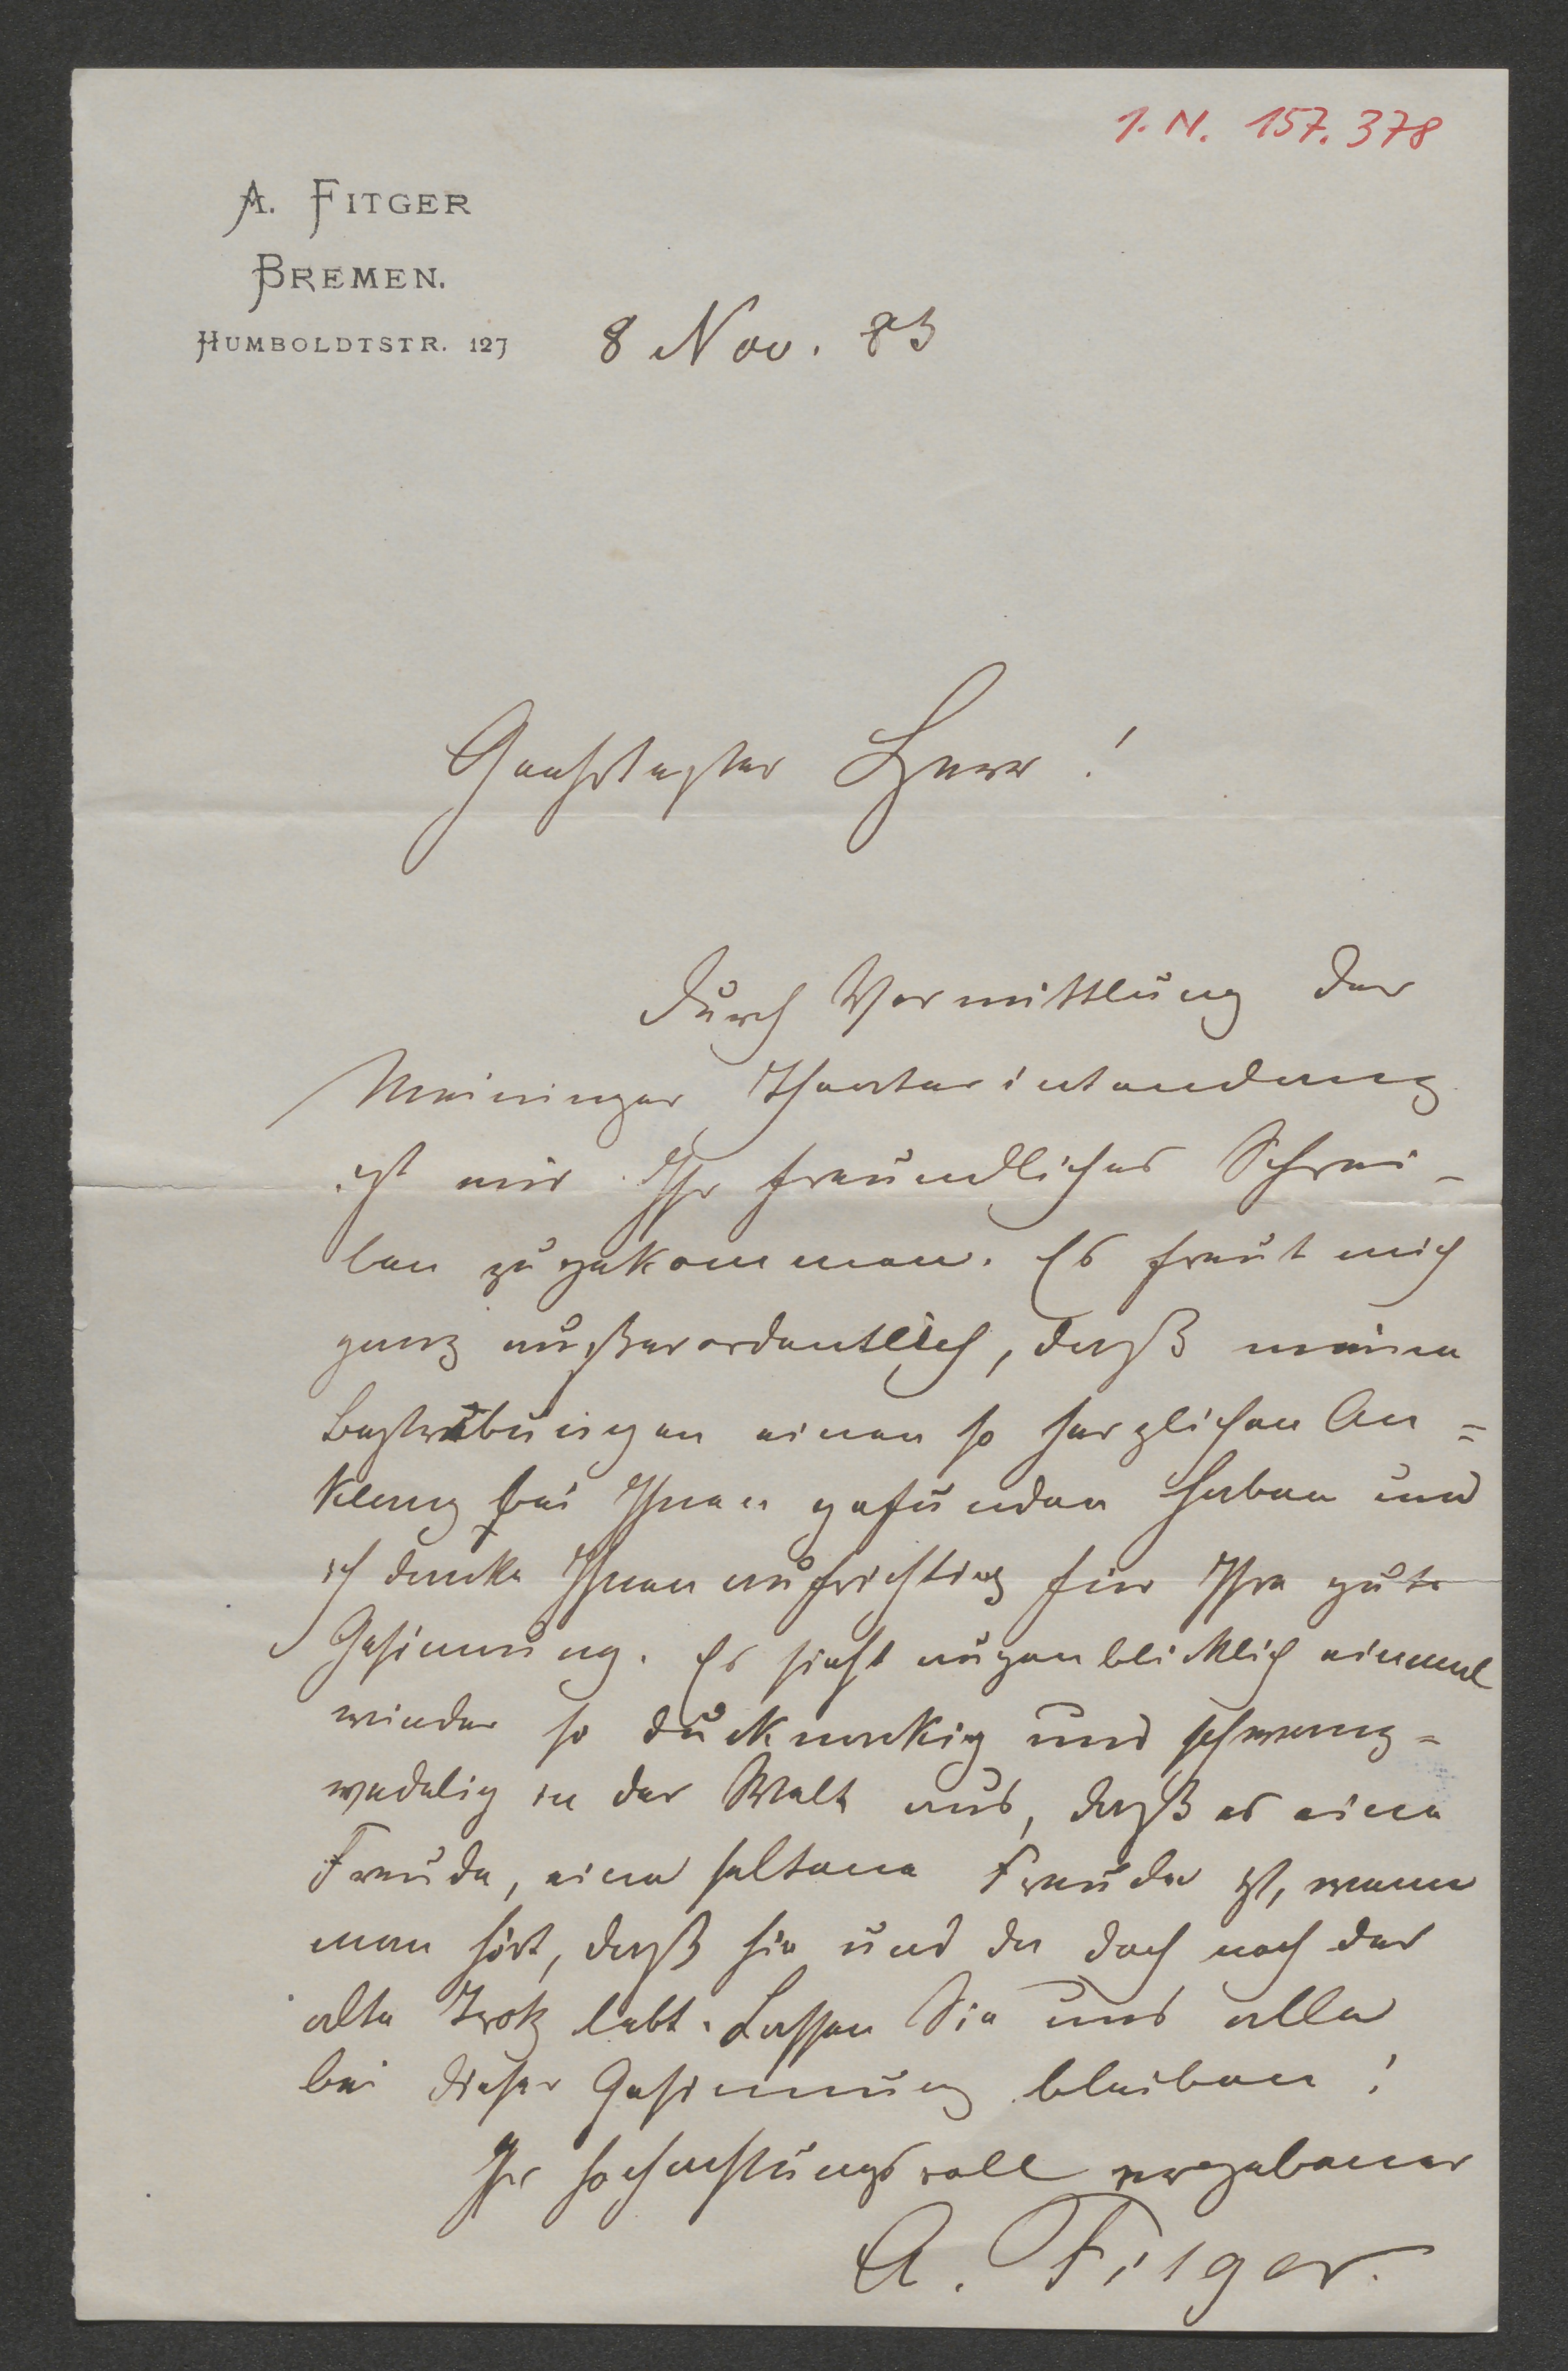 I. N. 157.378
A. FITGER
BREMEN.
HUMBOLDTSTR. 127
8 Nov. 83
Geehrtester Herr!
Durch Vermittlung der
Meininger Theaterintendanz
ist mir Ihr freundliches Schrei-
ben zugekommen. Es freut mich
ganz außerordentlich, daß meine
Bestrebungen einen so herzlichen An=
klang bei Ihnen gefunden haben und
ich danke Ihnen aufrichtig für Ihre gute
Gesinnung. Es sieht augenblicklich einmal
wieder so duknackig und schwanz=
wedelig in der Welt aus, daß es eine
Freude, eine seltene Freude ist, wenn
man hört, daß hie und da doch noch der
alte Trotz lebt. Lassen Sie uns alle
bei dieser Gesinnung bleiben!
Ihr hochachtungsvoll ergebener
A. Fitger.